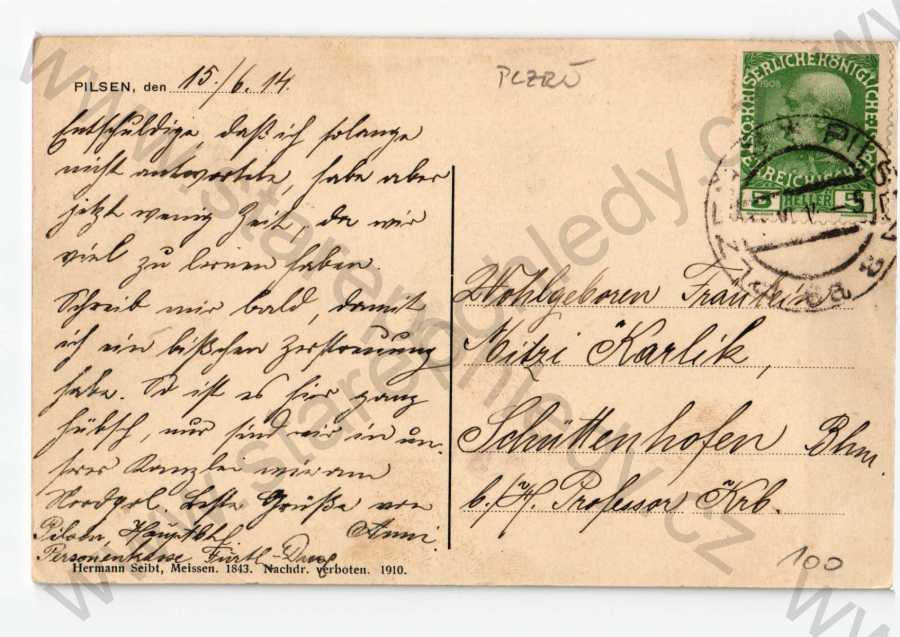 PILSEN, den 15./6. 14.
PLZEŇ
Entschuldige, daß ich solange
nicht antwortete, habe aber
jetzt wenig Zeit, da wir
viel zu lernen haben.
Schreib mir bald damit
ich ein bißchen Zerstreuung
habe. So ist es hier ganz
hübsch, nur sind wir in un-
serer Kanzlei wie am
Nordpol. Beste Grüße von
Anni.
Pilsen, Hauptbhf
Personenkasse
Hermann Seibt, Meissen. 1843. Nachdr. verboten. 1910.
KAISERLICHE KÖNIGLICHE
1908
5 HELLER 5
PILSEN
Wohlgeboren Fräulein
Mitzi Karlik,
Schüttenhofen Bhm.
b./H. Professor Krb.
100
www.starepohledy.cz